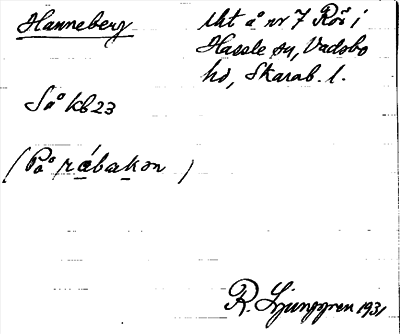 Hanneberg
tkt å nr 7 Rör i
Hassle sn, Vadsbo
hd, Skarab. l.
Så kb 23
(På rábakən)
R. Ljunggren 1931